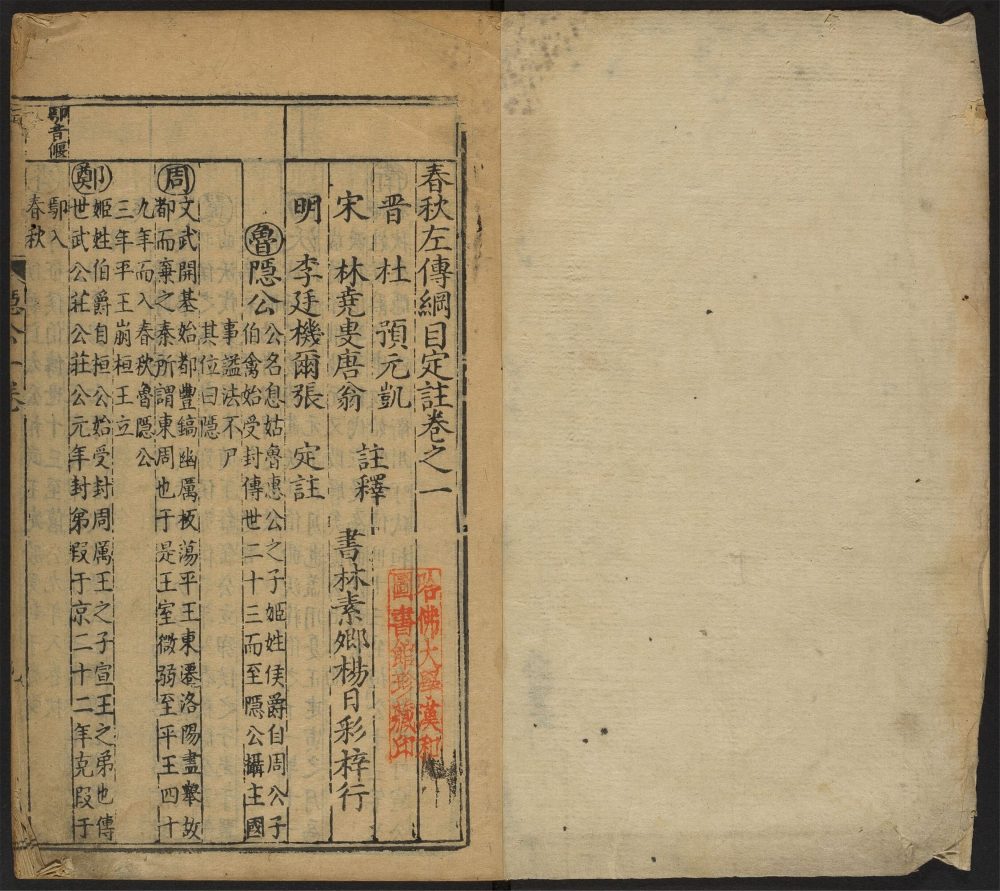 春秋左傳綱目定註卷之一
晉 杜 預元凱 註釋
宋 林堯叟唐翁 書林素卿楊日彩梓行
明 李廷機爾張 定註
魯隱公
公名息姑魯惠公之子姬姓侯爵自周公子
伯禽始受封傳世二十三而至隱公攝主國
事謚法不尸
其位曰隱
周
文武開基始都豐鎬幽厲板蕩平王東遷洛陽盡舉故
都而棄之秦所謂東周也于是王室微弱至平王四十
九年而入春秋魯隱公
三年平王崩桓王立
鄭
姬姓伯爵自桓公始受封周厲王之子宣王之弟也傳
世武公莊公莊公元年封弟段于京二十二年克段于
鄢入
春秋
鄢音偃
哈佛大學漢和
圖書館珍藏印